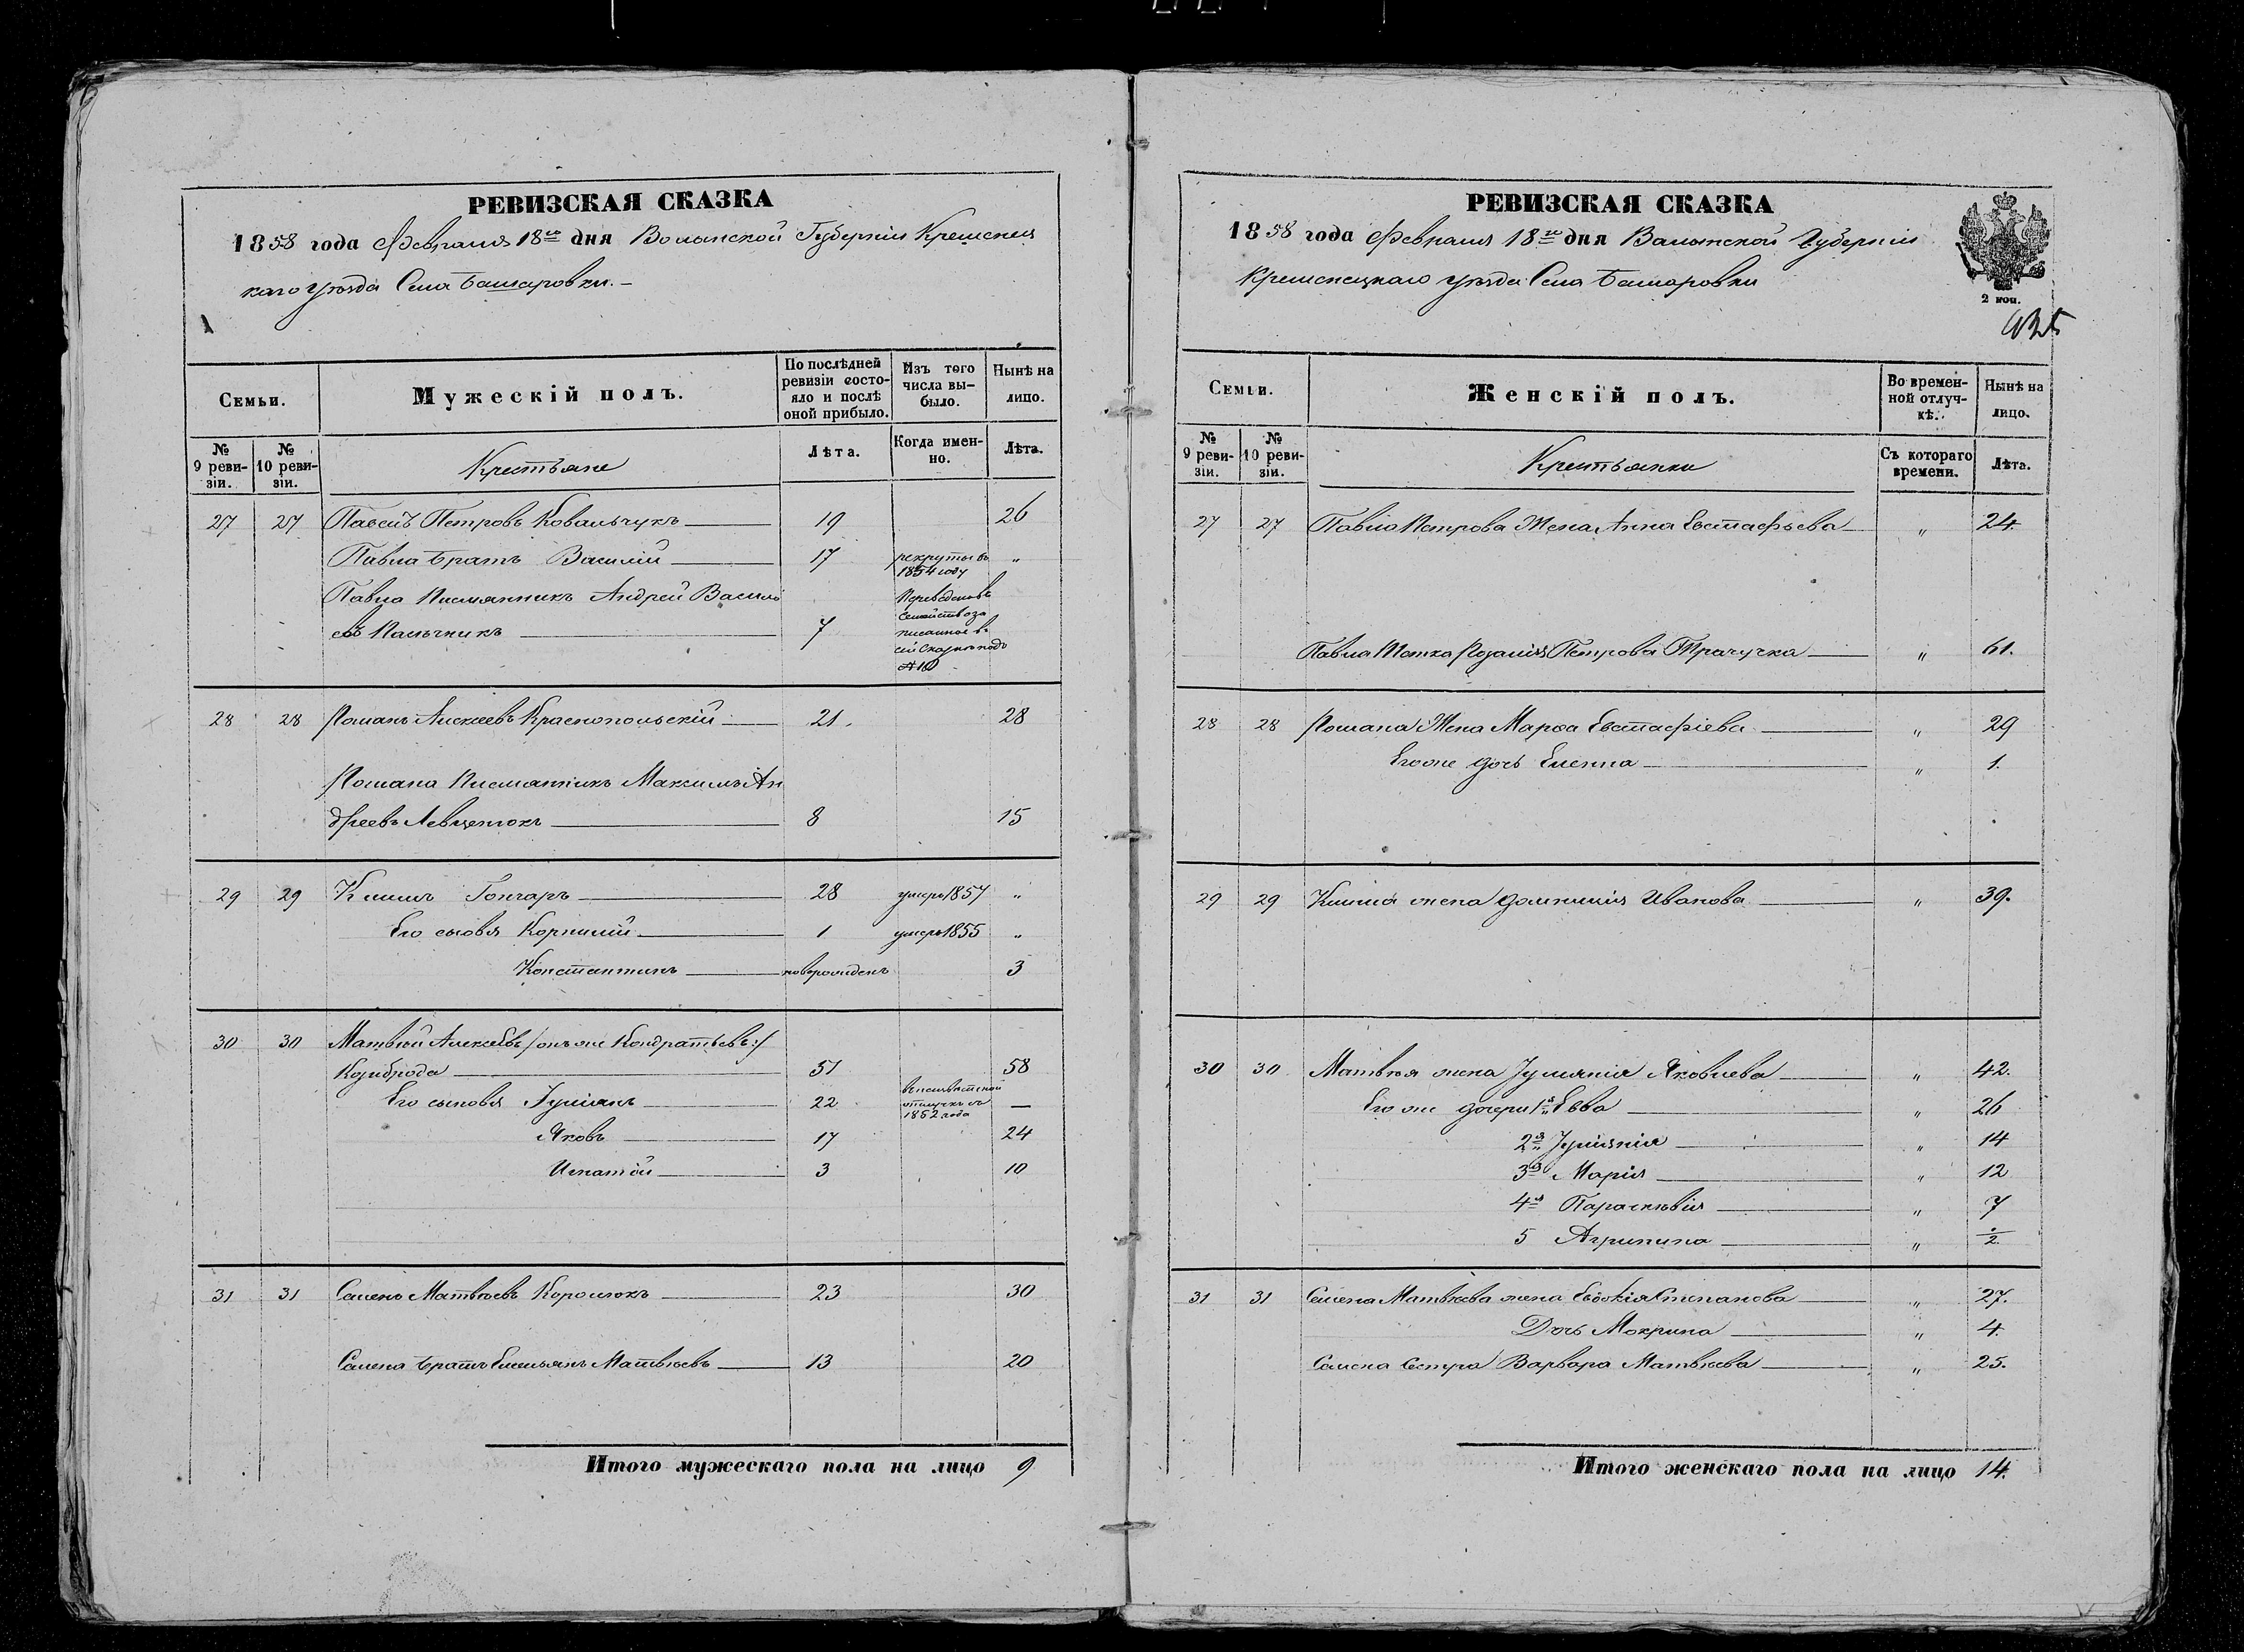 РЕВИЗСКАЯ СКАЗКА
1858 года Февраля 18го дня Волынской Губернiи Кременец
каго уѣзда Села Башаровки.-
Семьи.
Мужескій полъ.
По послѣдней ревизіи состо-
яло и послѣ оной прибыло.
Изъ того числа вы-
было.
Нынѣ на лицо.
№ 9 реви-
зіи.
№ 10 реви-
зіи.
Крестьяне
Лѣта.
Когда имен-
но.
Лѣта.
27 27 Павелъ Петровъ Ковальчукъ 19 26
Павла братъ Василій 17 рекруты въ "
1854 году
Павла Писмянникъ Андрей Василь
евъ Пасѣчникъ 7
семейство за
писанное въ
сей Сказкѣ подъ
№ 10
28 28 Романъ Алексѣевъ Краснопольскій 21. 28
Романа Писмянникъ Максимъ Ан
дреевъ 8 15
29 29 Климъ Гончаръ 28 умеръ 1857 "
Его сыновя Корнилій 1 умеръ 1855 "
Константинъ новорожденъ 3
30 30 Матвѣй Алексѣевъ /онъ же Кондратьевъ:/
Козиброда 51 58
Его сыновя Гуліянъ 22 въ неизвѣстной
отлучкѣ съ
1852 года —
Яковъ 17 24
Игнатій 3 10
31 31 Семенъ Матвѣевъ Королюкъ 23 30
Семена братъ Емельянъ Матвѣевъ 13 20
Итого мужескаго пола на лицо 9
РЕВИЗСКАЯ СКАЗКА
1858 года Февраля 18го дня Волынской Губерніи
Кременецкаго уѣзда Села Башаровки
2 коп.
Семьи.
Женскій полъ.
Во времен-
ной отлуч-
кѣ.
Нынѣ на лицо.
№ 9 реви-
зіи.
№ 10 реви-
зіи.
Крестьянки
Съ котораго времени.
Лѣта.
27 27 Павла Петрова Жена Анна Евстафьева " 24.
Павла Тетка Розалія Петрова Ткачучка " 61.
28 28 Романа Жена Марѳа Евстафіева " 29
Его же дочь Еленна " 1.
29 29 Клима жена Домникія Иванова " 39.
30 30 Матвѣя жена Гулянія Яковлева " 42.
Его же дочери 1я Евва " 26
2я Гуліянія " 14
3я Марія " 12
4я Параскѣвія " 7
5 Агрипина " 1/2.
31 31 Семена Матвѣева жена Евдокія Степанова " 27.
Дочь Мокрина " 4.
Семена Сестра Варвара Матвѣева " 25.
Итого женскаго пола на лицо 14.